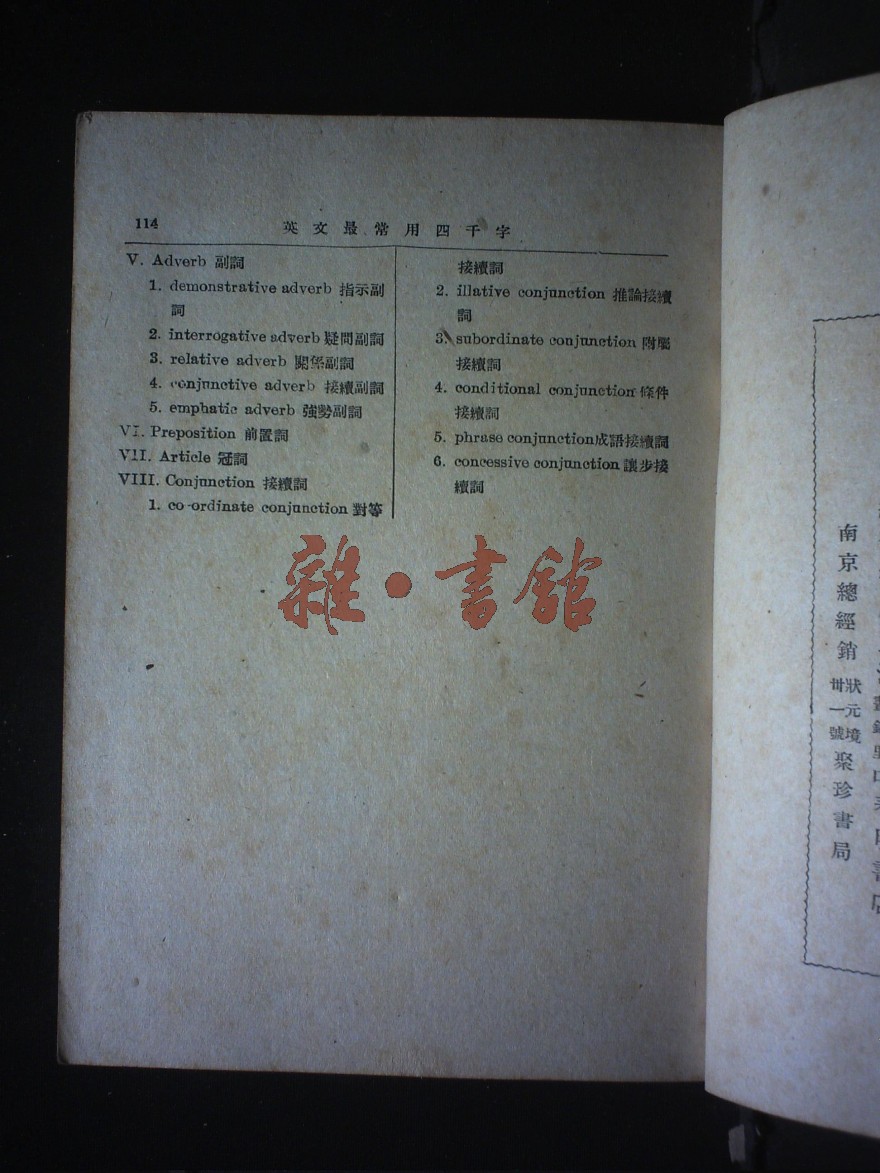 114
英文最常用四千字
V. Adverb 副詞
1. demonstrative adverb 指示副
詞
2. interrogative adverb 疑問副詞
3. relative adverb 關係副詞
4. conjunctive adverb 接續副詞
5. emphatic adverb 強勢副詞
VI. Preposition 前置詞
VII. Article 冠詞
VIII. Conjunction 接續詞
1. co-ordinate conjunction 對等
接續詞
2. illative conjunction 推論接續
詞
3. subordinate conjunction 附屬
接續詞
4. conditional conjunction 條件
接續詞
5. phrase conjunction 成語接續詞
6. concessive conjunction 讓步接
續詞
雜·書館
南京總經銷
狀元境
卅一號
聚珍書局